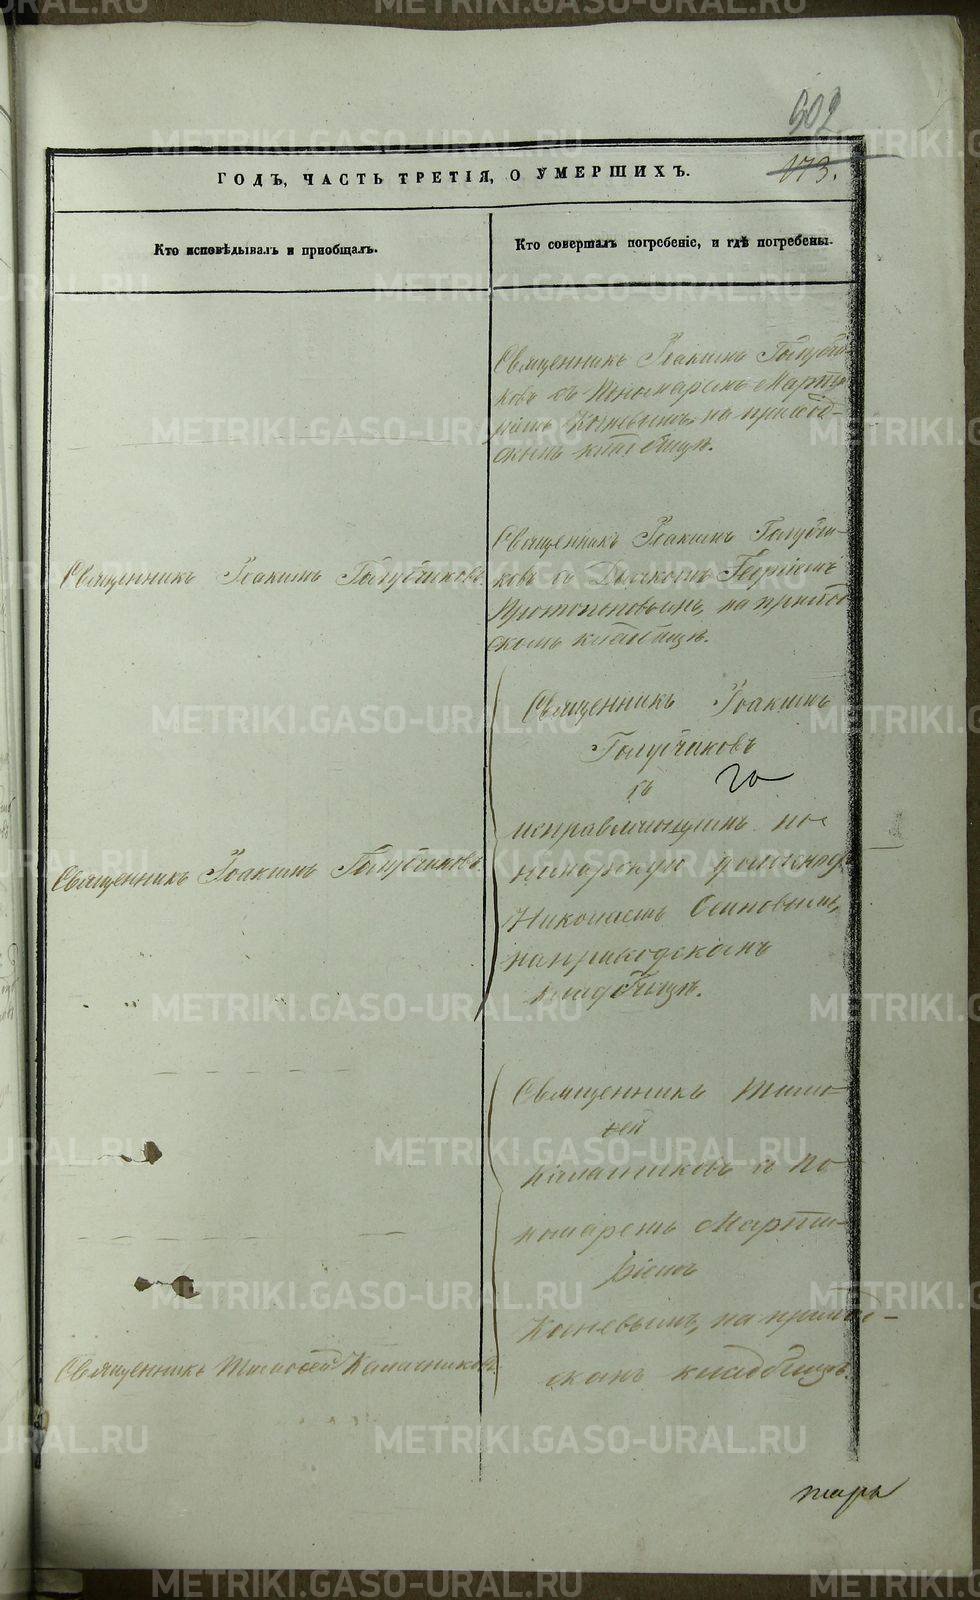 902
173.
ГОДЪ, ЧАСТЬ ТРЕТІЯ, О УМЕРШИХЪ.
Кто исповѣдывалъ и пріобщалъ.
Кто совершалъ погребеніе, и гдѣ погребены.
Священникъ Іоакимъ Голубчи-
ковъ съ Пономаремъ Марти-
ріемъ Кочневымъ, на приход-
скомъ кладбищѣ.
Священникъ Іоакимъ Голубчиковъ.
Священникъ Іоакимъ Голубчи-
ковъ съ Дьячкомъ Георгіемъ
Протопоповымъ, на приход-
скомъ кладбищѣ.
Священникъ Іоакимъ Голубчиковъ.
Священникъ Іоакимъ
Голубчиковъ
съ
исправляющимъ по-
номарскую должность
Николаемъ Осиновымъ,
на приходскомъ
кладбищѣ.
Священникъ Тимоѳей Калачниковъ.
Священникъ Тимо-
ѳей
Калашниковъ съ По-
номаремъ Марти-
ріемъ
Кочневымъ, на приход-
скомъ кладбищѣ.
METRIKI.GASO-URAL.RU